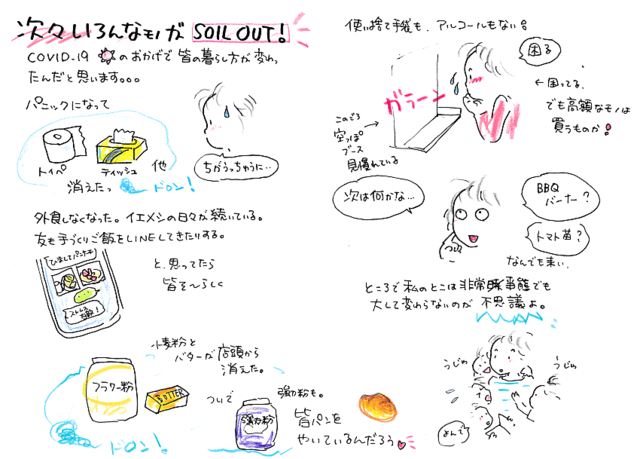 次々いろんなモノが SOIL OUT!
COVID-19 のおかげで 皆の暮らし方が変わっ
たんだと思います。。。
パニックになって
トイペ
ティッシュ 他
消えたっ ドロン!
ちがうっちゃうに…
外食しなくなった。イエメシの日々が続いている。
友も手づくりご飯をLINEしてきたりする。
と、思ってたら
皆も〜らしく
小麦粉と
バターが店頭から
消えた。
フラワー粉
BUTTER
ドロン!
ついで
強力粉も。
強力粉
皆パンを
やいているんだろう
使い捨て手袋も、アルコールもない!
困る
ガラーン
このごろ
空っぽ
ブース
見慣れている
← 困ってる、
でも高額なモノは
買うものか!
次は何かな…
BBQ
バーナー?
トマト苗?
なんでも来い、
ところで私のとこは非常事態でも
大して変わらないのが 不思議よ。
うじゃ
うじゃ
よんで